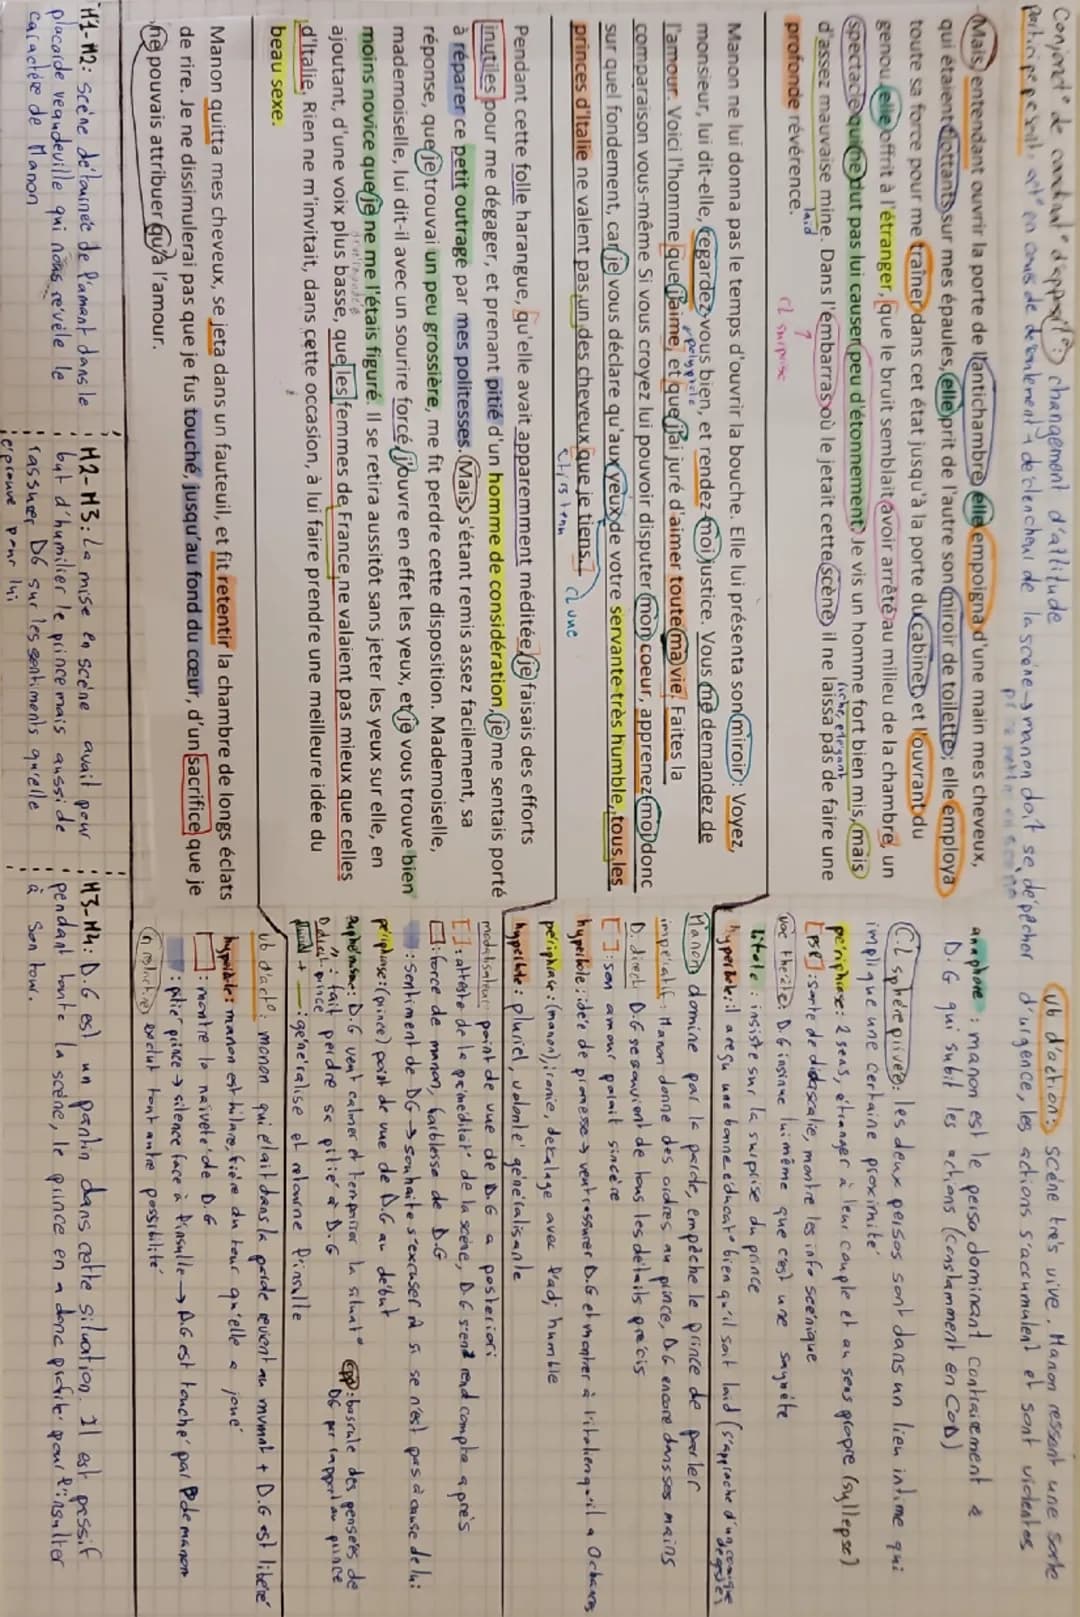 Conjonct° de coordinat° d'opposit° : changement d'attitude
participe présent :
déclencheur de la scène → manon doit se dépêcher
Mais, entendant ouvrir la porte de l'antichambre, elle empoigna d'une main mes cheveux,
qui étaient flottants sur mes épaules, elle prit de l'autre son miroir de toilette ; elle employa
toute sa force pour me traîner dans cet état jusqu'à la porte du cabinet, et l'ouvrant du
genou, elle offrit à l'étranger, que le bruit semblait avoir arrêté au milieu de la chambre, un
spectacle qui ne dut pas lui causer peu d'étonnement. Je vis un homme fort bien mis, mais
riche, élégant
d'assez mauvaise mine. Dans l'embarras où le jetait cette scène, il ne laissa pas de faire une
laid
profonde révérence.
CL surprise
Manon ne lui donna pas le temps d'ouvrir la bouche. Elle lui présenta son miroir : Voyez,
monsieur, lui dit-elle, regardez-vous bien, et rendez-moi justice. Vous me demandez de
polyptote
l'amour. Voici l'homme que j'aime, et que j'ai juré d'aimer toute ma vie. Faites la
comparaison vous-même Si vous croyez lui pouvoir disputer mon coeur, apprenez-moi donc
sur quel fondement, car je vous déclare qu'aux yeux de votre servante très humble, tous les
princes d'Italie ne valent pas un des cheveux que je tiens.
Pendant cette folle harangue, qu'elle avait apparemment méditée, je faisais des efforts
inutiles pour me dégager, et prenant pitié d'un homme de considération, je me sentais porté
à réparer ce petit outrage par mes politesses. Mais, s'étant remis assez facilement, sa
réponse, que je trouvai un peu grossière, me fit perdre cette disposition. Mademoiselle,
mademoiselle, lui dit-il avec un sourire forcé, j'ouvre en effet les yeux, et je vous trouve bien
moins novice que je ne me l'étais figuré. Il se retira aussitôt sans jeter les yeux sur elle, en
ajoutant, d'une voix plus basse, que les femmes de France ne valaient pas mieux que celles
d'Italie. Rien ne m'invitait, dans cette occasion, à lui faire prendre une meilleure idée du
beau sexe.
Manon quitta mes cheveux, se jeta dans un fauteuil, et fit retentir la chambre de longs éclats
de rire. Je ne dissimulerai pas que je fus touché, jusqu'au fond du cœur, d'un sacrifice que je
ne pouvais attribuer qu'à l'amour.
vb d'action : scène très vive, Manon ressent une sorte
d'urgence, les actions s'accumulent et sont violentes
anaphore : manon est le perso dominant contrairement à
D.G qui subit les actions (constamment en COD)
CL sphère privée : les deux persos sont dans un lieu intime qui
implique une certaine proximité
périphrase : 2 sens, étranger à leur couple et au sens propre (syllepse)
[PSR] : sorte de didascalie, montre les info scénique
voc théâtre : D.G insinue lui même que c'est une saynète
litote : insiste sur la surprise du prince
hyperbole : il a reçu une bonne éducat° bien qu'il soit laid (s'approche d'un comique
de geste)
Manon domine par la parole, empêche le prince de parler
impératif : Manon donne des ordres au prince, D.G encore dans ses mains
D. direct D.G se souvient de tous les détails précis
[ ] : son amour paraît sincère
hyperbole : idée de promesse → veut rassurer D.G et montrer à l'italien qu'il a 0 chances
périphrase : (manon), ironie, décalage avec l'adj humble
hyperbole : pluriel, volonté généralisante
modalisateur : point de vue de D.G a posteriori
[ ] : atteste de la préméditat° de la scène, D.G s'en rend compte après
: force de manon, faiblesse de D.G
: Sentiment de DG → souhaite s'excuser
périphrase : (prince) point de vue de D.G au début
euphémisme : D.G veut calmer et tempérer la situat°
D. direct prince : fait perdre sa pitié à D.G
: généralise et retourne l'insulte
vb d'act° : manon qui était dans la parole revient au mvmnt + D.G est libéré
hyperbole : manon est hilare, fière du tour qu'elle a joué
: montre la naïveté de D.G
: pitié prince → silence face à l'insulte → D.G est touché par de manon
n. restrictive exclut tout autre possibilité
M1-M2 : Scène détournée de l'amant dans le
placard vaudeville qui nous révèle le
caractère de Manon
M2-M3 : La mise en scène avait pour
but d'humilier le prince mais aussi de
rassurer DG sur les sentiments qu'elle
éprouve pour lui
M3-M4 : D.G est un pantin dans cette situation. Il est passif
pendant toute la scène, le prince en a donc profité pour l'insulter
à son tour.